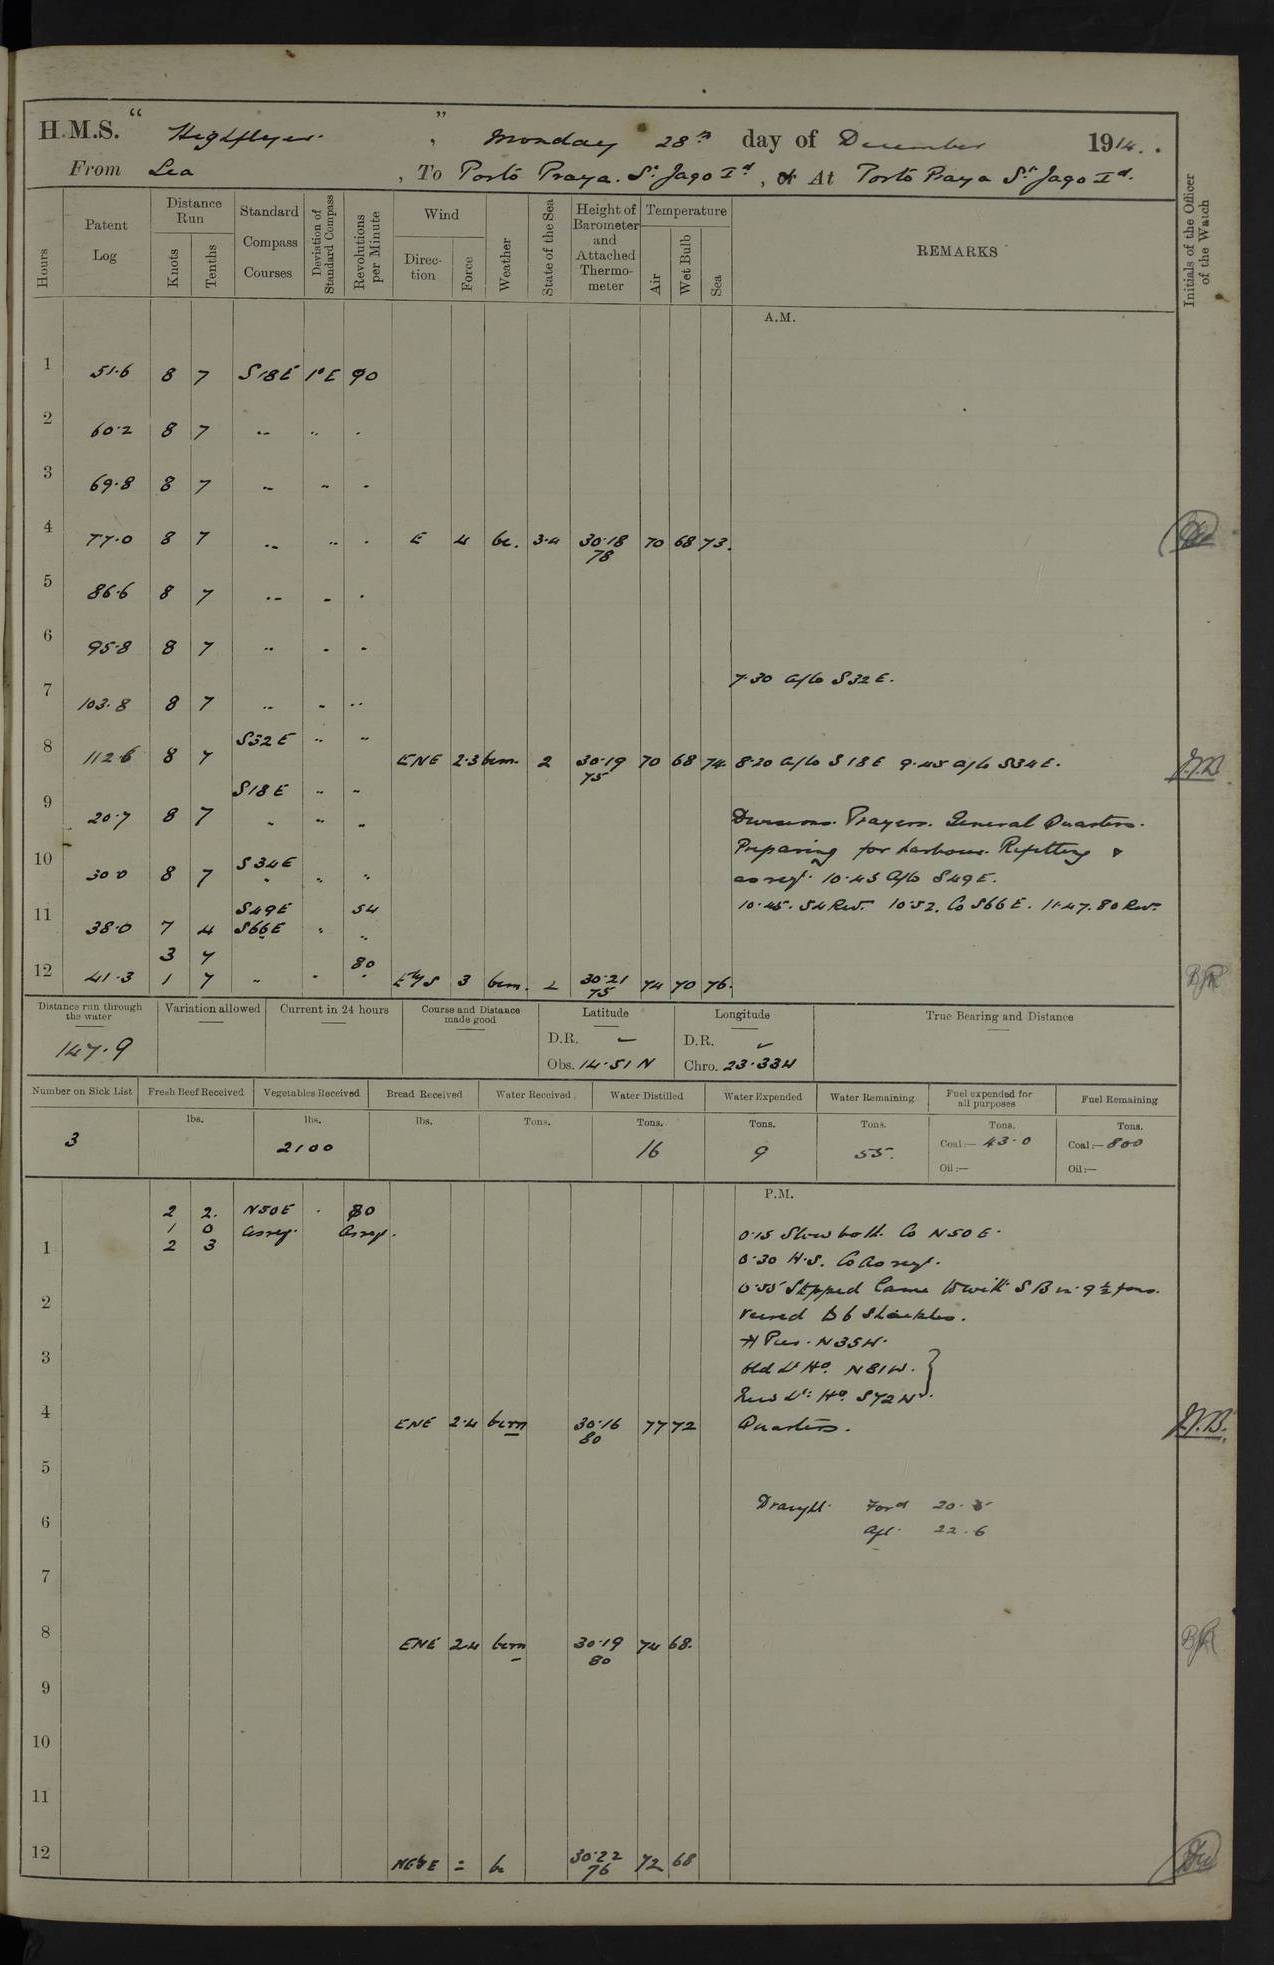 H.M.S. “ Highflyer. ” , Monday 28th day of December 1914.
From Sea , To Porto Praya. St. Jago Id. , or At Porto Praya St. Jago Id.
Hours
Patent Log
Distance Run
Knots
Tenths
Standard Compass Courses
Deviation of Standard Compass
Revolutions per Minute
Wind
Direction
Force
Weather
State of the Sea
Height of Barometer and Attached Thermometer
Temperature
Air
Wet Bulb
Sea
REMARKS
Initials of the Officer of the Watch
A.M.
1 51.6 8 7 S18E 1°E 90
2 60.2 8 7 " " "
3 69.8 8 7 " " "
4 77.0 8 7 " " " E 4 bc. 3.4 30.18 70 68 73.
78
5 86.6 8 7 " " "
6 95.8 8 7 " " "
7.30 a/c S32E.
7 103.8 8 7 " " "
S32E " "
8 112.6 8 7 ENE 2.3 bcm. 2 30.19 70 68 74 8.30 a/c S18E 9.45 a/c S34E.
75
S18E " "
9 20.7 8 7 " " " Divisions. Prayers. General Quarters.
Preparing for harbour. Refitting &
10 30.0 8 7 S34E " " as req. 10.45 a/c S49E.
S49E 54 10.45. 54 Rev. 10.52. Co S66E. 11.47. 80 Rev.
11 38.0 7 4 S66E " "
3 7 80
12 41.3 1 7 " " " EbyS 3 bcm. 2 30.21 74 70 76.
75
Distance run through the water
147.9
Variation allowed
Current in 24 hours
Course and Distance made good
Latitude
D.R. –
Obs. 14.51 N
Longitude
D.R.
Chro. 23.33W
True Bearing and Distance
Number on Sick List
3
Fresh Beef Received
lbs.
Vegetables Received
lbs.
2100
Bread Received
lbs.
Water Received
Tons.
Water Distilled
Tons.
16
Water Expended
Tons.
9
Water Remaining
Tons.
55.
Fuel expended for all purposes
Tons.
Coal:— 43.0
Oil:—
Fuel Remaining
Tons.
Coal:— 800
Oil:—
P.M.
2 2. N50E 80
1 0 as req. as req. 0.15 Slow both. Co N50E.
1 2 3
0.30 H.S. Co as req.
2 0.55 Stopped Came to with SB in 9½ fms.
Veered to 6 Shackles.
3 Pier. N35W.
Old Lt Ho. N81W.
New Lt. Ho. S72W.
4 ENE 2.4 bcm 30.16 77 72 Quarters. J.B.
80
5
Draught. Ford 20.
6 Aft. 22.6
7
8 ENE 2.4 bcm 30.19 74 68.
80
9
10
11
12 NEbE = bc 30.22 72 68
76